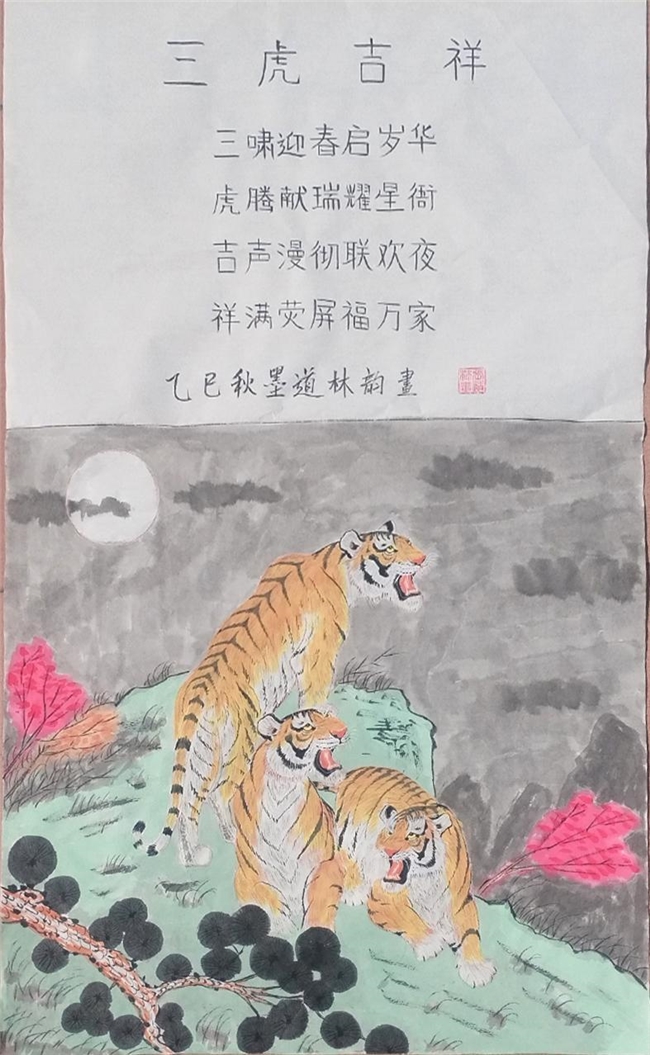 三虎吉祥
三啸迎春启岁华
虎腾献瑞耀星衙
吉声漫彻联欢夜
祥满荧屏福万家
乙巳秋墨道林韵畫